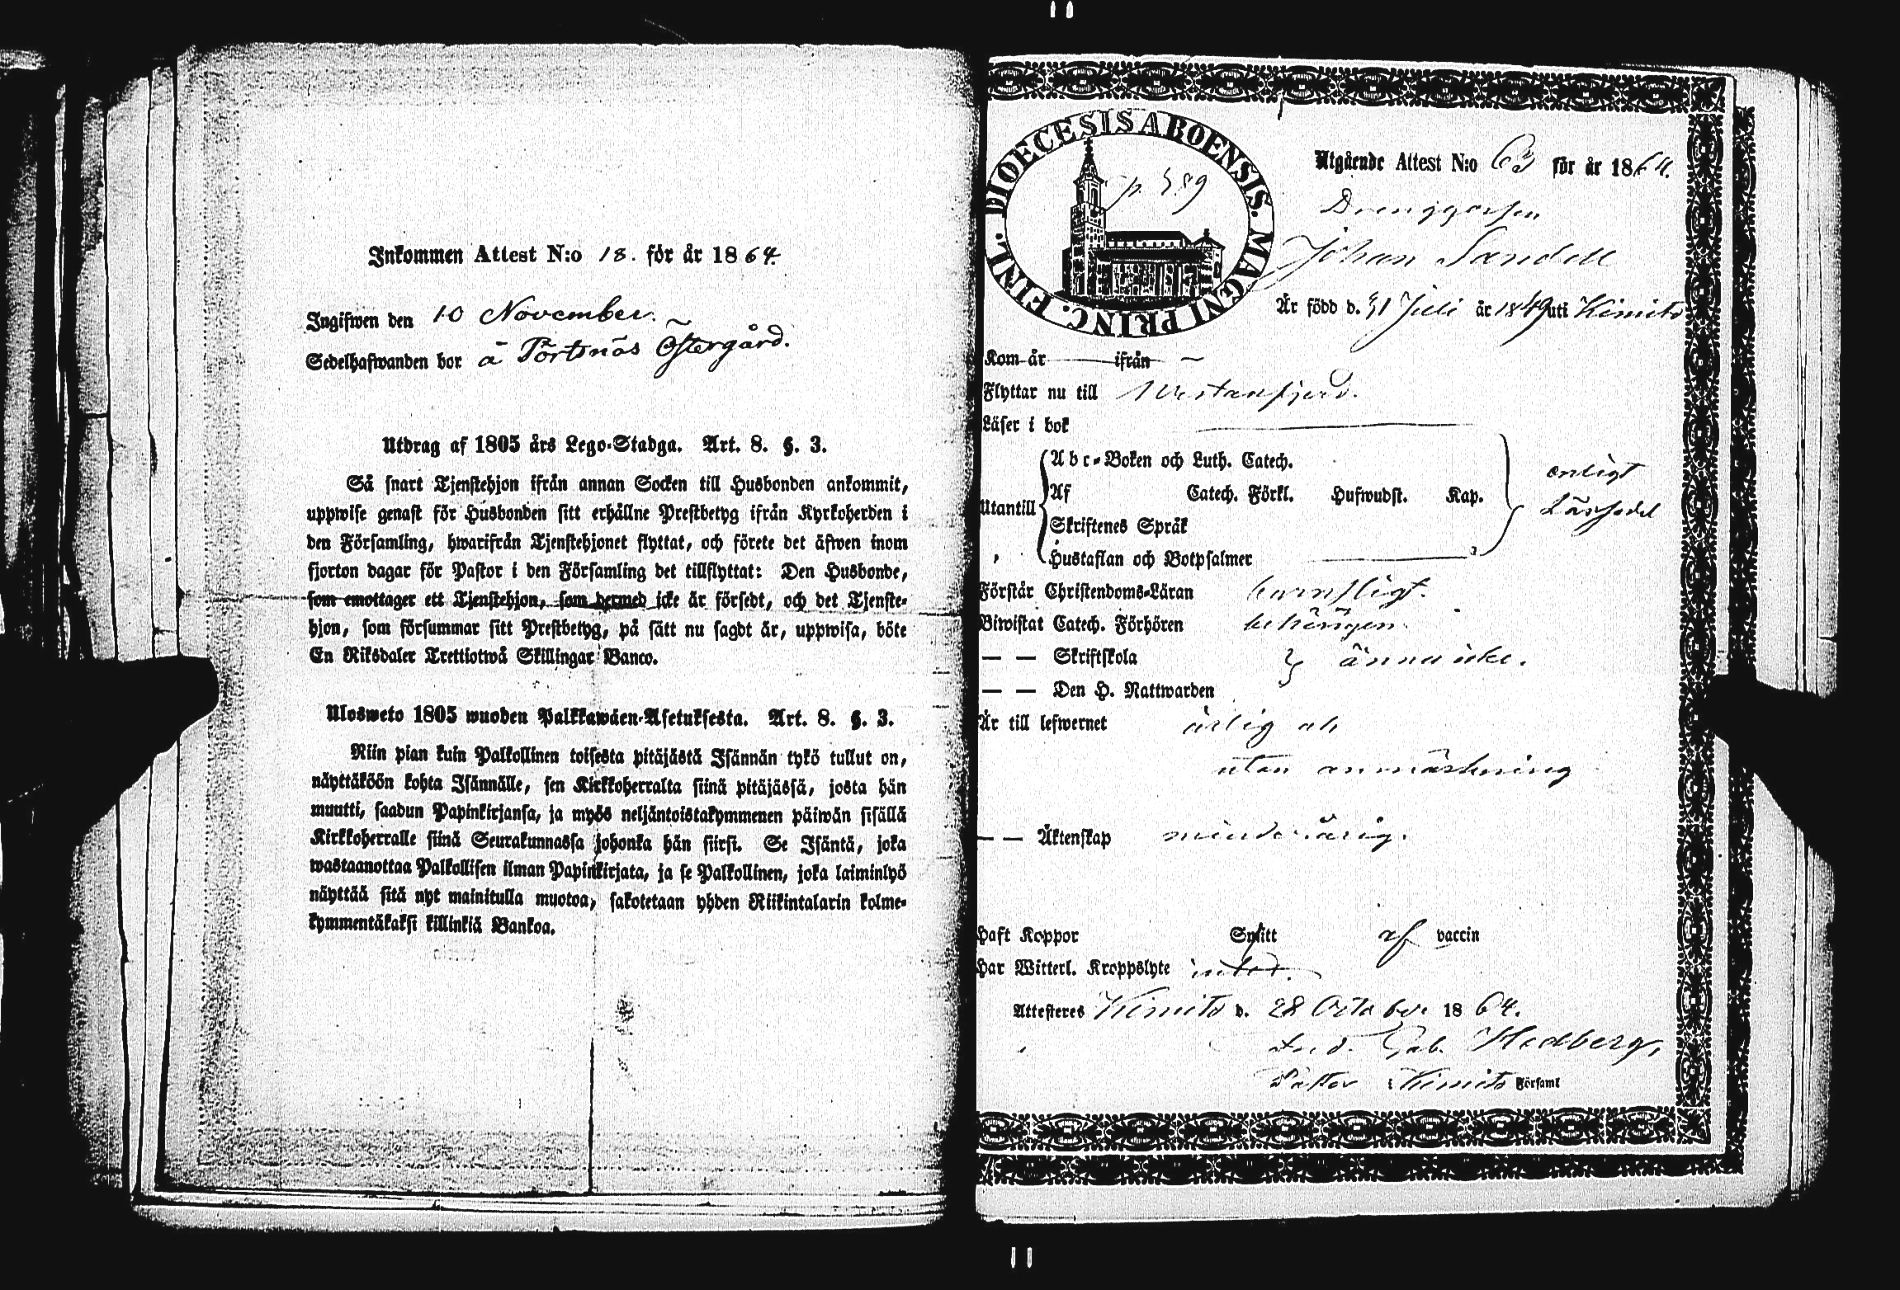 Inkommen Attest N:o 18. för år 1864.
Ingifwen den 10 November.
Sedelhafwanden bor å Pörtsnäs Östergård.
Utdrag af 1805 års Lego-Stadga. Art. 8. §. 3.
Så snart Tjenstehjon ifrån annan Socken till Husbonden ankommit,
uppwise genast för Husbonden sitt erhållne Prestbetyg ifrån Kyrkoherden i
den Församling, hwarifrån Tjenstehjonet flyttat, och förete det äfwen inom
fjorton dagar för Pastor i den Församling det tillflyttat: Den Husbonde,
som emottager ett Tjenstehjon, som dermed icke är försedt, och det Tjenste-
hjon, som försummar sitt Prestbetyg, på sätt nu sagdt är, uppwisa, böte
En Riksdaler Trettiotwå Skillingar Banco.
Ulosweto 1805 wuoden Palkkawäen-Asetuksesta. Art. 8. §. 3.
Niin pian kuin Palkollinen toisesta pitäjästä Isännän tykö tullut on,
näyttäköön kohta Isännälle, sen Kirkkoherralta siinä pitäjässä, josta hän
muutti, saadun Papinkirjansa, ja myös neljäntoistakymmenen päiwän sisällä
Kirkkoherralle siinä Seurakunnassa johonka hän siirsi. Se Isäntä, joka
wastaanottaa Palkollisen ilman Papinkirjata, ja se Palkollinen, joka laiminlyö
näyttää sitä nyt mainitulla muotoa, sakotetaan yhden Riikintalarin kolme-
kymmentäkaksi killinkiä Bankoa.
DIOECESIS ABOENSIS. MAGNI PRINC. FINL.
p. 389
Utgående Attest N:o 63 för år 1864.
Drenggossen
Johan Sandell
Är född d. 31 Juli år 1849 uti Kimito
Kom år ifrån
Flyttar nu till Westanfjerd.
Läser i bok
Utantill
Abc-Boken och Luth. Catech.
Af Catech. Förkl. Hufwudst. Kap.
Skriftenes Språk
Hustaflan och Botpsalmer
enligt
Läsesedel
Förstår Christendoms-Läran
Biwistat Catech. Förhören behörigen.
— — Skriftskola
— — Den H. Nattwarden
ännu icke.
Är till lefwernet ärlig och
utan anmärkning
— — Äktenskap minderårig.
Haft Koppor Smitt af vaccin
Har Witterl. Kroppslyte intet.
Attesteres Kimito d. 28 October 1864.
Fred. Gab. Hedberg,
Pastor i Kimito Församl